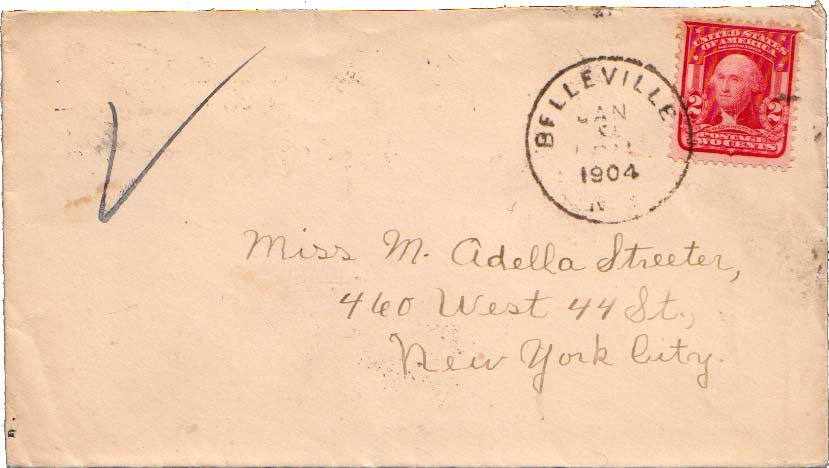 UNITED STATES
OF AMERICA
BELLEVILLE
JAN
1904
2 WASHINGTON 2
POSTAGE
TWO CENTS
Miss M. Adella Streeter,
460 West 44 St.,
New York City.